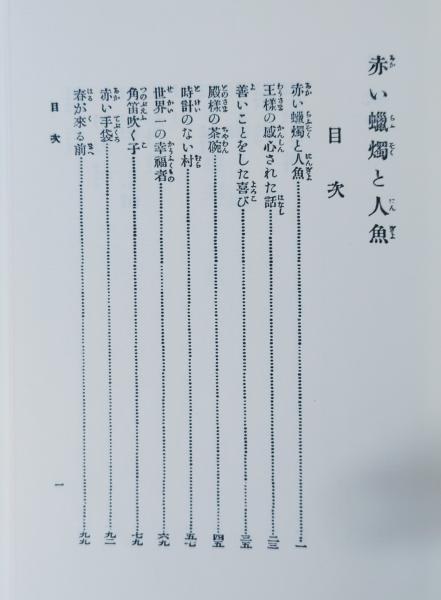 赤い蠟燭と人魚
目次
赤い蠟燭と人魚……一
王様の感心された話……二三
善いことをした喜び……三五
殿様の茶碗……四五
時計のない村……五七
世界一の幸福者……六九
角笛吹く子……七九
赤い手袋……九二
春が來る前……九九
目次 一